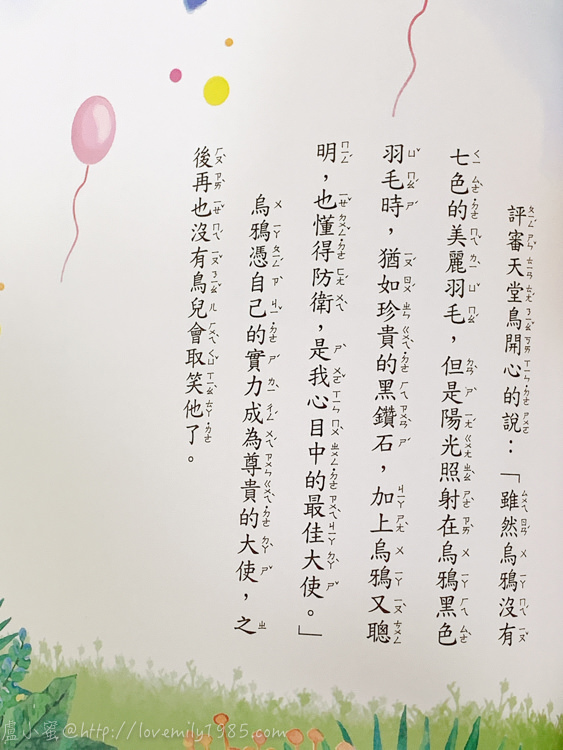 評審天堂鳥開心的說：「雖然烏鴉沒有
七色的美麗羽毛，但是陽光照射在烏鴉黑色
羽毛時，猶如珍貴的黑鑽石，加上烏鴉又聰
明，也懂得防衛，是我心目中的最佳大使。」
烏鴉憑自己的實力成為尊貴的大使，之
後再也沒有鳥兒會取笑他了。
盧小蜜@http://lovemily1985.com/